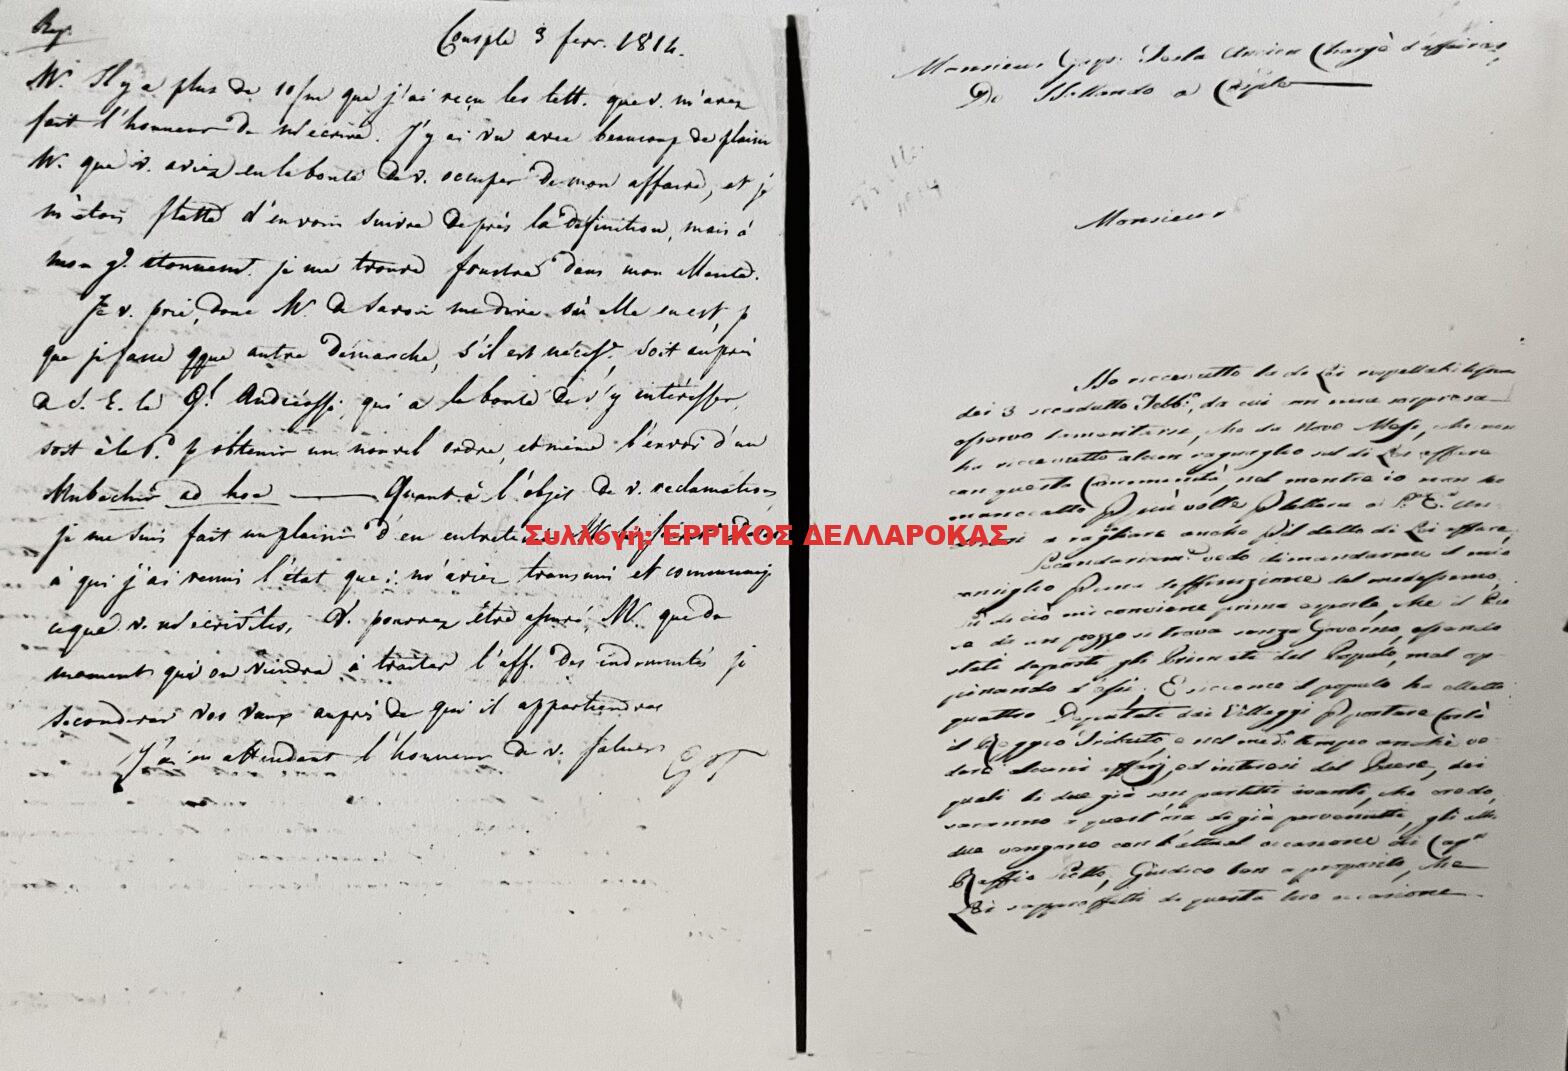 Consple 3 fevr. 1814.
Mr. Il y a plus de 10/m que j'ai reçu les lett. que v. m'avez
fait l'honneur de m'écrire. J'y ai vu avec beaucoup de plaisir
Mr. que v. aviez eu la bonté de v. occuper de mon affaire, et je
m'étois flatté d'en voir suivre de près la définition, mais à
mon gd. etonnemt. je me trouve frustré dans mon attente.
Je v. prie, donc Mr. de savoir me dire où elle en est, p
que je fasse qque autre démarche, s'il est nécess. soit auprès
de S. E. le Gl. Andréossi, qui a la bonté de s'y intéresser,
soit à la P. p obtenir un nouvel ordre, et même l'envoi d'un
Mubachir ad hoc — Quant à l'objet de v. reclamations,
je me suis fait un plaisir d'en entretenir Mr
à qui j'ai remis l'état que m'aviez transmis et communiq
ce que v. m'écrivites. V. pourrez être assuré, Mr. que du
moment qu'on viendra à traiter l'aff. des indemnités je
seconderai vos vœux auprès de qui il appartiendra
J'ai en attendant l'honneur de v. saluer
Monsieur Gasp. Testa Ancien Chargé d'affaires
De Hollanda a Cople
Monsieur
Ho riccevutto la di Lei rispettabilissima
dei 3 scadutto Febb.
osservo lamentarsi, che da Nove Mesi, che non
ha riccevutto alcun ragguaglio sul di Lei affare
con questa Communità, nel mentre io non ho
mancatto più volte
a ragliare anche
consiglio
di ciò mi conviene prima esporle, che il
a di un pezzo si trova senza Governo, essendo
stati deposti gli Primati del Populo, mal op-
pinando d'essi, E siccome il populo ha eletto
quattro Deputati dei Villaggi p portare costà
il Reggio Tributo, e nel med. tempo anche ve-
dere alcuni affari, ed interessi del Paese, dei
quali le due già son partitti avanti, che credo,
saranno a quest'ora di già pervenutti, gli altri
due vengono con l'attual occasione di Capn
Raffio Pietto, Giudico ben a proposito, che
Lei sappia
di questa loro occasione
Συλλογή: ΕΡΡΙΚΟΣ ΔΕΛΛΑΡΟΚΑΣ